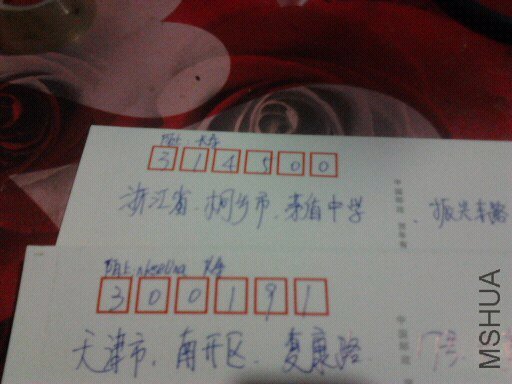 314500
浙江省.桐乡市.茅盾中学.振兴东路
300191
天津市.南开区.复康路
MSHUA